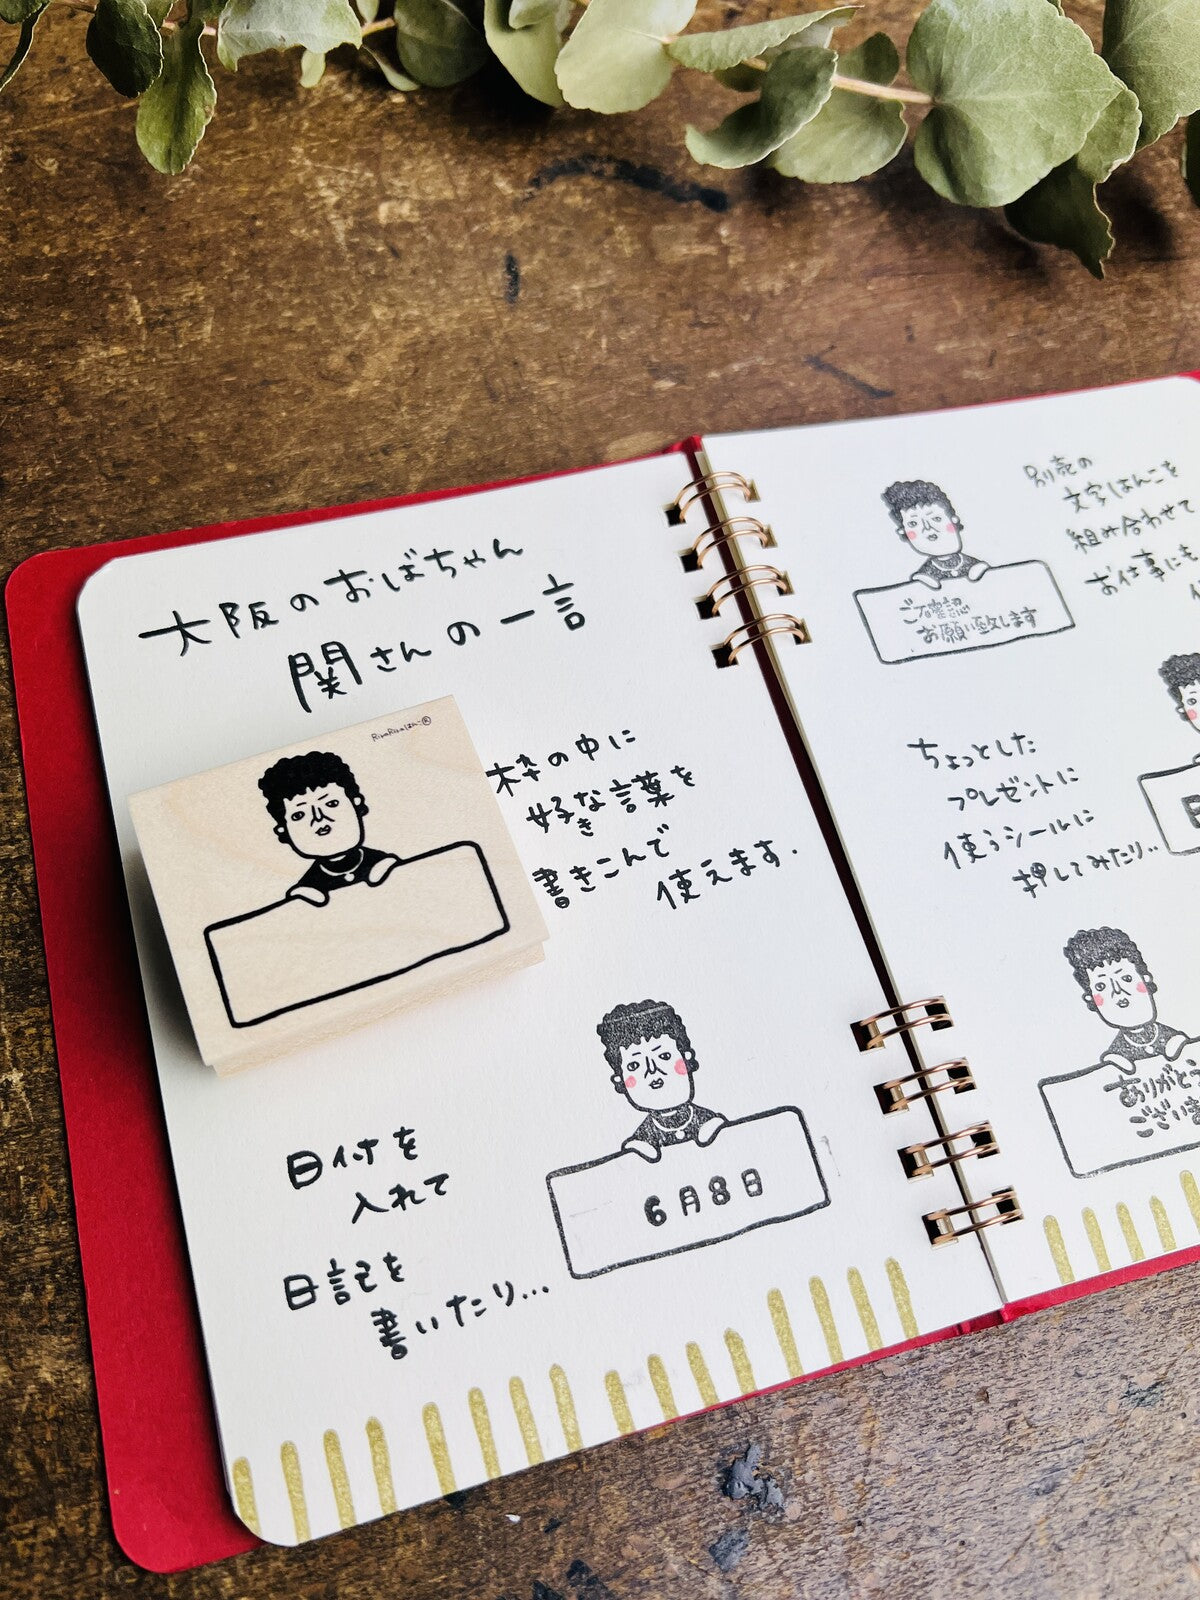 大阪のおばちゃん
関さんの一言
RivaRivaはんこ®
枠の中に
好きな言葉を
書きこんで
使えます.
日付を
入れて
日記を
書いたり...
6月8日
別売の
文字はんこを
組み合わせて
お仕事にも
ご確認
お願い致します
ちょっとした
プレゼントに
使うシールに
押してみたり..
ありがとう
ございま